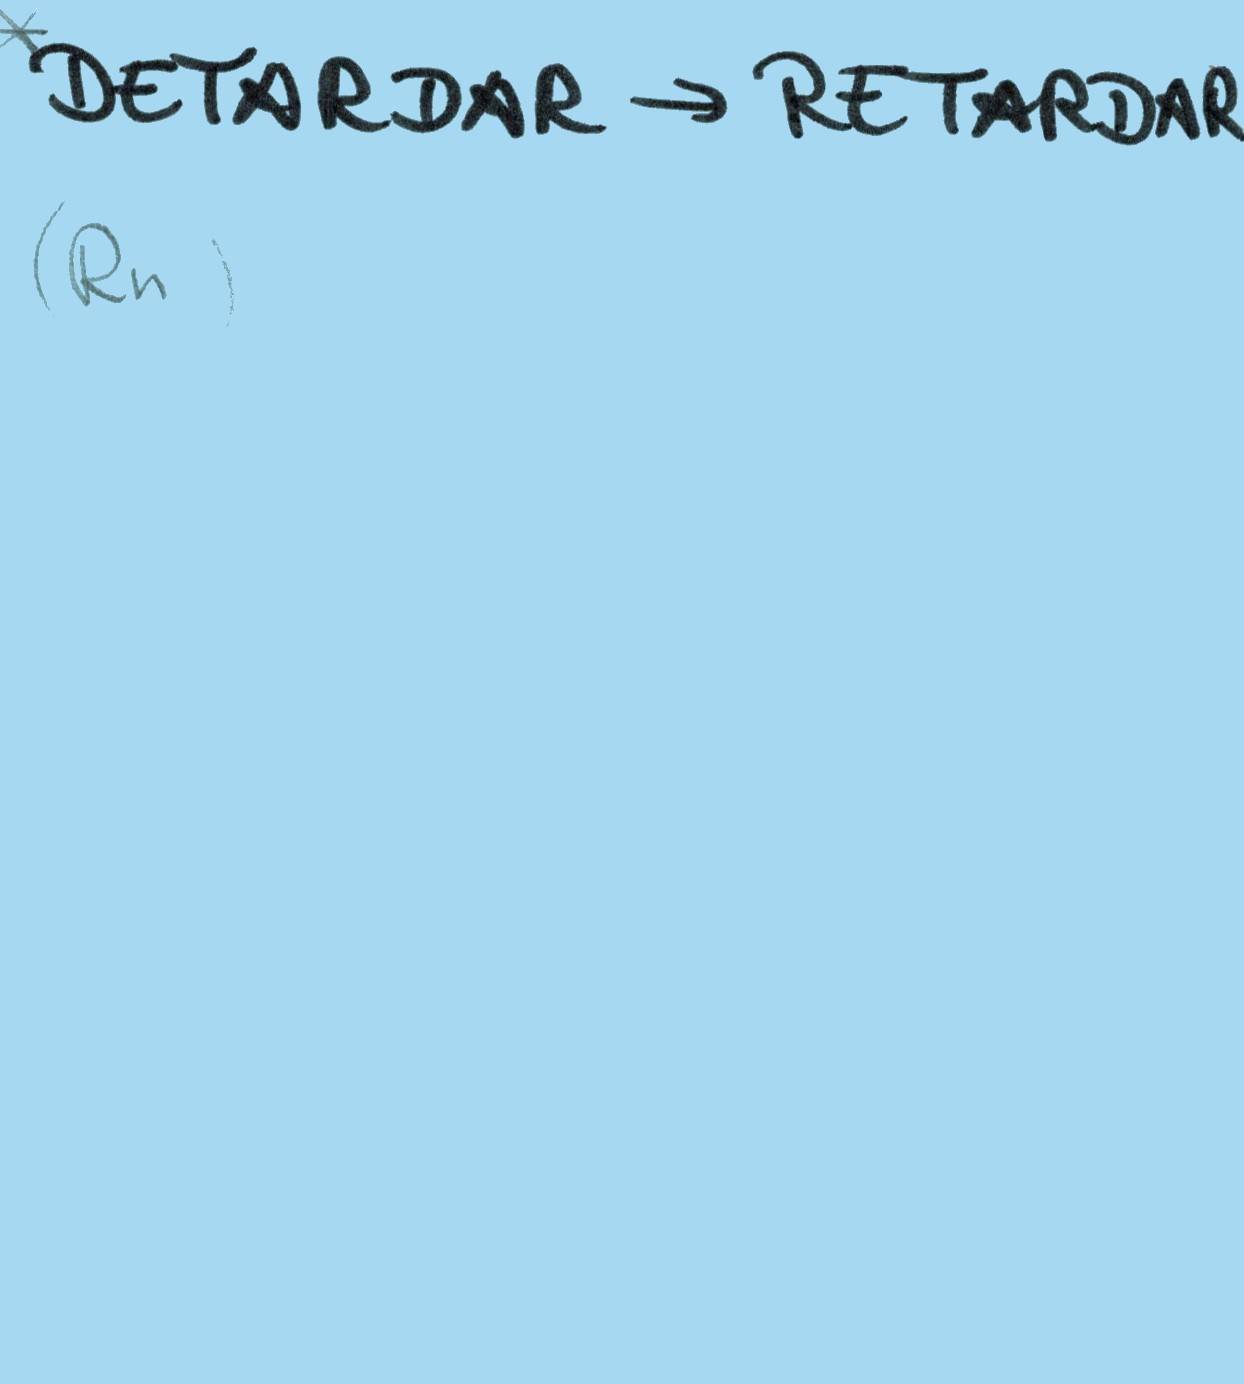 *DETARDAR → RETARDAR
(Rn )